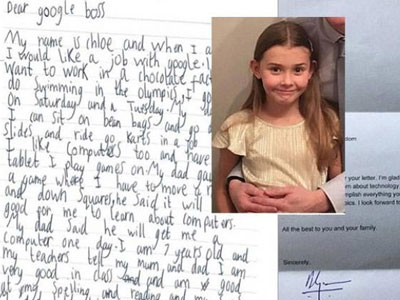 Dear google boss
My name is chloe and when I a
I would like a job with google. I
want to work in a chocolate
do swimming in the olympics. I go
On Saturday and a Tuesday. My d
I can sit on bean bags and go
slides and ride go karts in a job
I like computers too and have
tablet I play games on. My dad gave
a game where I have to move
and down squares, he said it will
good for me to learn about computers.
My dad said he will get me a
computer one day. I am 7 years old and
my teachers tell my mum and dad I am
very good in class and am good
at my spelling and reading and my
dom
your letter. I'm glad
rn about technology
mplish everything you
pics. I look forward to
All the best to you and your family.
Sincerely,